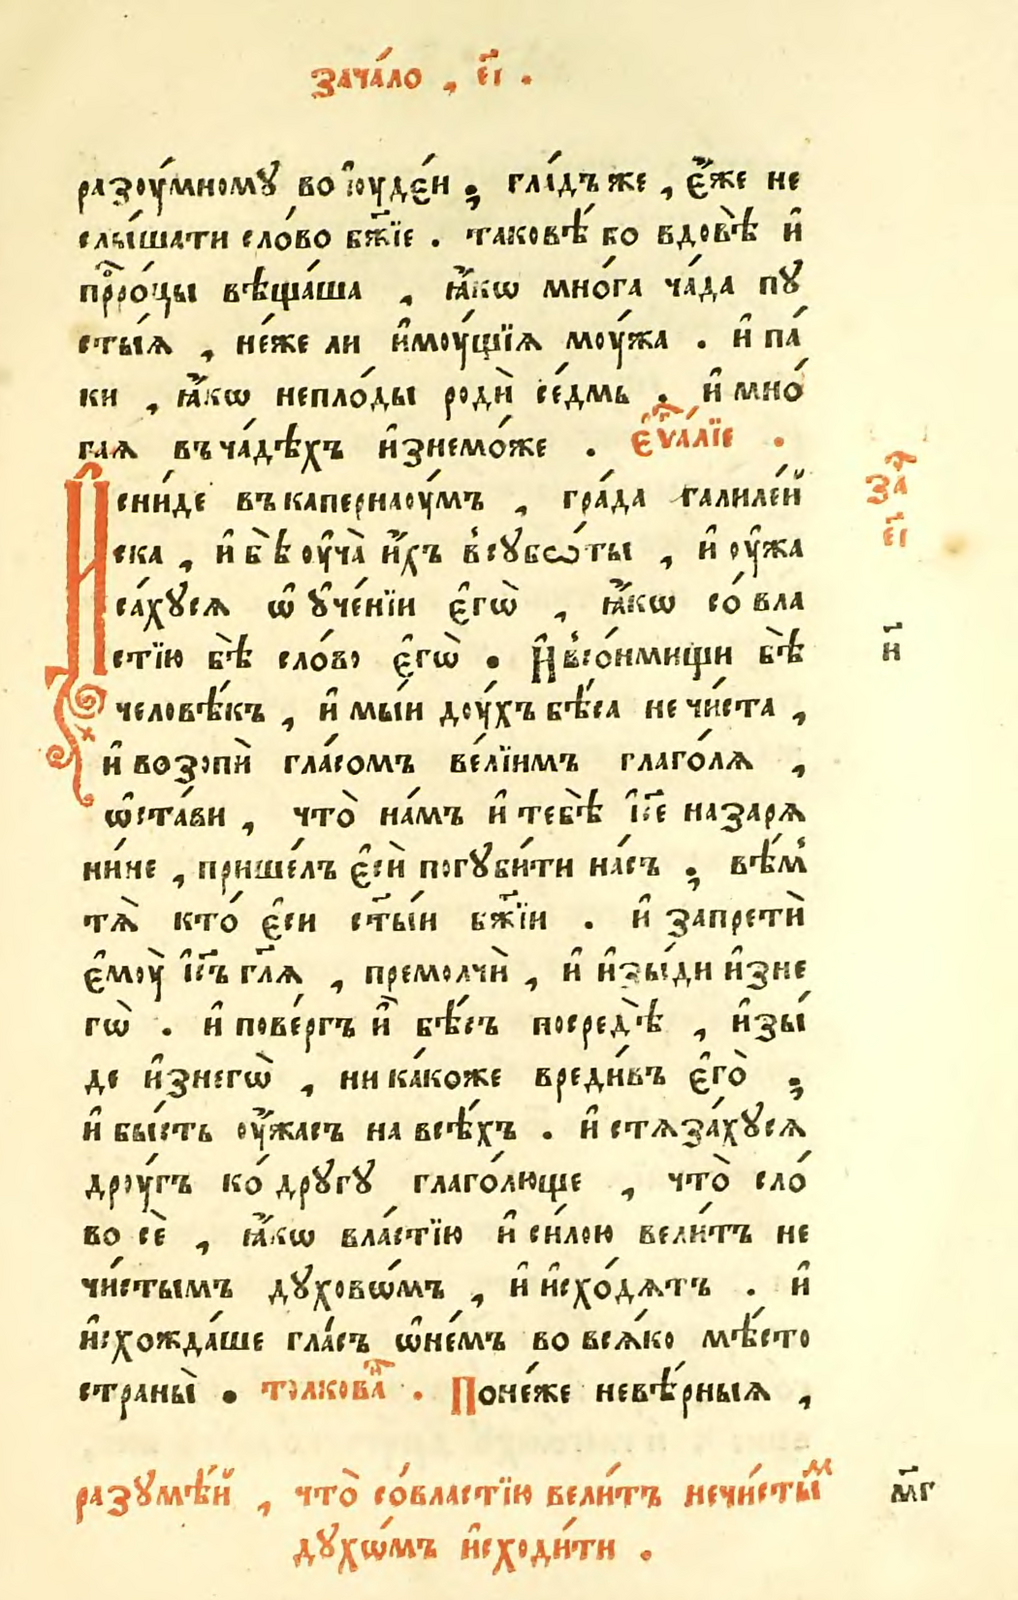 зача́ло , є҃і .
разоу́мномꙋ во і҆оуде́и ; гла́дъ же , є҆́же не
слы́шати сло́во бж҃їе . таковѣ́ бо вдовѣ̀ и҆
прⷪ҇ро́цы вѣща́ша , ꙗ҆́кѡ мно́га ча́да пꙋ
сты́ѧ , не́же ли и҆моу́щїѧ моу́жа . и҆ па́
ки , ꙗ҆́кѡ непло́ды родѝ се́дмь . и҆ мно́
гаѧ въ ча́дѣхъ и҆знемо́же . є҆ѵⷢ҇а́лїе .
И҆ сни́де въ капернаоу́мъ , гра́да галиле́й
зⷱ҇а
ска , и҆ бѣ̀ оу҆ча̀ и҆̀хъ в̾сꙋбѡ́ты , и҆ оу҆жа
є҃і
са́хꙋсѧ ѡ҆ ᲂу҆че́нїи є҆гѡ̀ , ꙗ҆́кѡ со́ вла
стїю бѣ̀ сло́во є҆гѡ̀ . И҆ в̾со́нмищи бѣ̀
и҃
человѣ́къ , и҆мы́и доу́хъ бѣ́са не чи́ста ,
и҆ возопѝ гла́сомъ ве́лїимъ глаго́лѧ ,
ѡ҆ста́ви , что̀ на́мъ и҆ тебѣ̀ і҆с҃е назарѧ
ни́не , прише́лъ є҆сѝ погꙋби́ти на́съ ; вѣ́м̾
тѧ̀ кто́ є҆си ст҃ы́и бж҃їи . и҆ запретѝ
є҆моу̀ і҆с҃ъ гл҃ѧ , премолчѝ , и҆ и҆зы́ди и҆зне
гѡ̀ . и҆ пове́ргъ и҆̀ бѣ́съ посредѣ̀ , и҆зы́
де и҆знегѡ̀ , ни ка́коже вреди́въ є҆го̀ ;
и҆ бы́сть оу҆́жасъ на всѣ́хъ . и҆ стѧза́хꙋсѧ
дроу́гъ ко́ дрꙋгꙋ глаго́люще , что̀ сло́
во сѐ , ꙗ҆́кѡ вла́стїю и҆ си́лою вели́тъ не
чи́стымъ дꙋховѡ́мъ , и҆ и҆схо́дѧтъ . и҆
и҆схожда́ше гла́съ ѡ҆не́мъ во всѧ́ко мѣ́сто
страны̀ . толкова́нⷩ҇ . Поне́же невѣ́рныѧ ,
разꙋмѣ́й , что̀ со́властїю вели́тъ нечи́сты́ⷨ
м҃г
дꙋхѡ́мъ и҆сходи́ти .